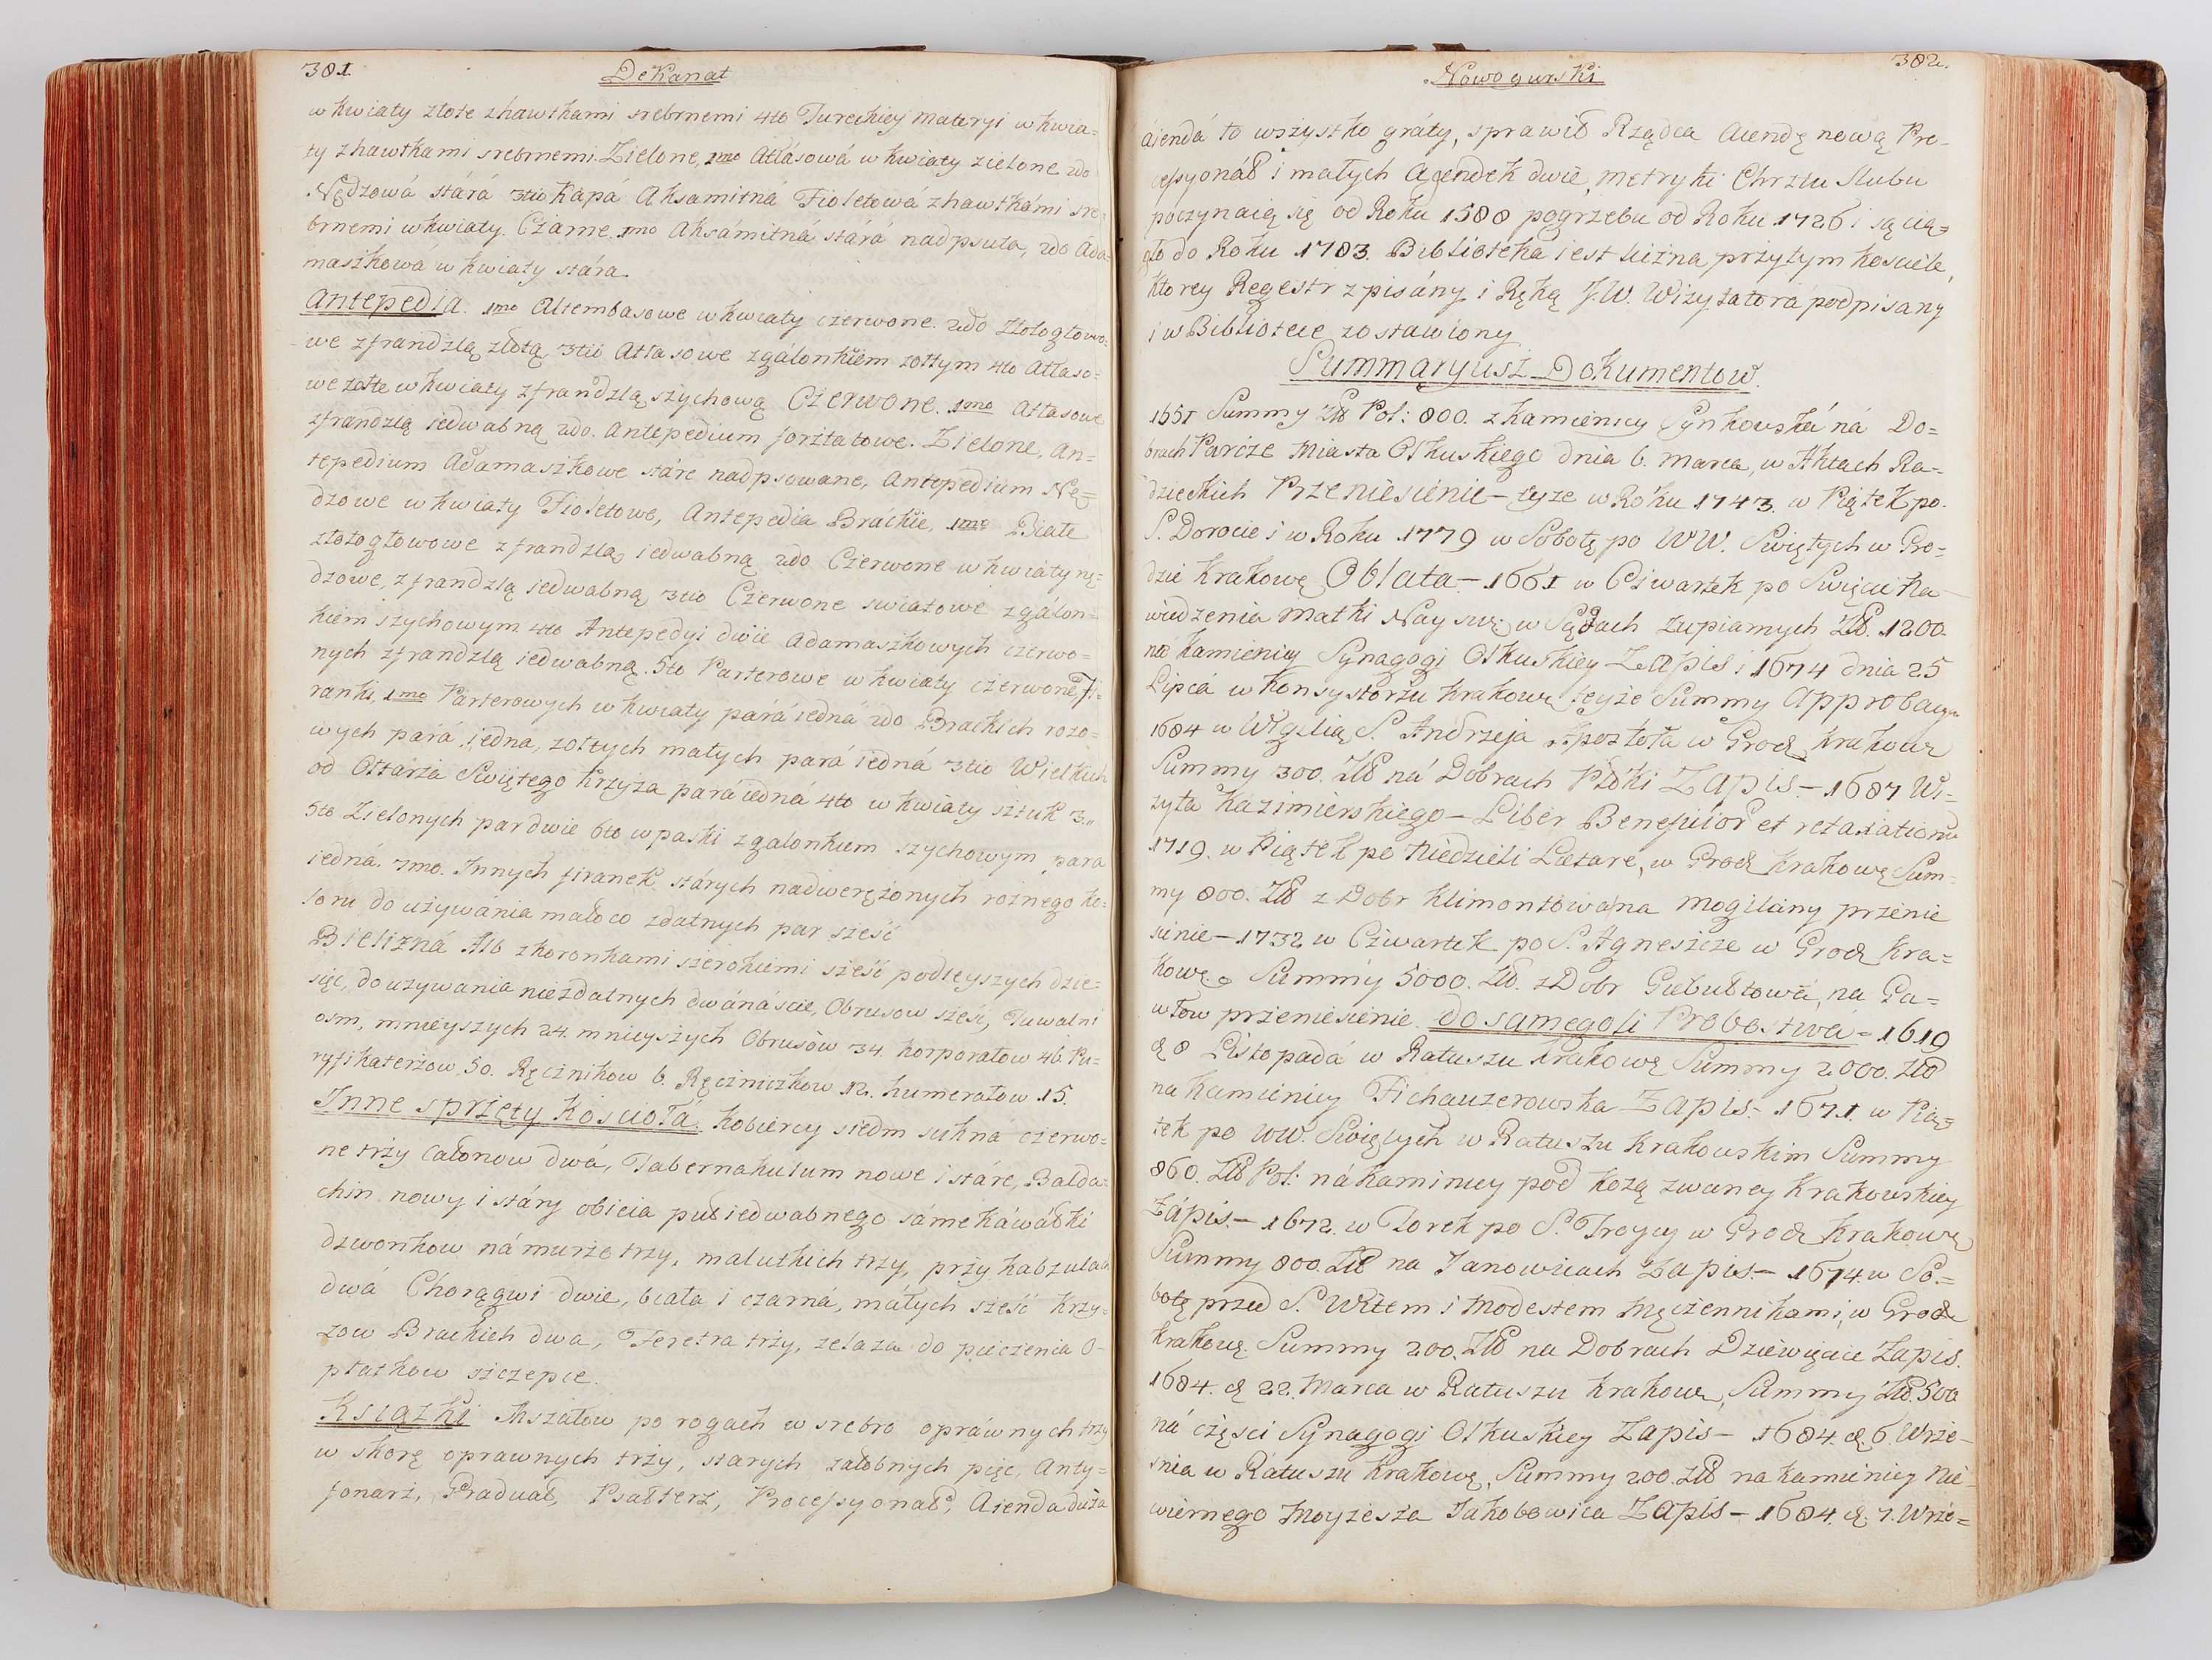 381.
DeKanat
w kwiaty złote z hawtkami srebrnemi 4to Tureckiey materyi w kwia=
ty z hawtkami srebrnemi. Zielone, 1mo Atłásowá w kwiaty zielone 2do
Nędzowá stárá 3tio Kapá Aksamitná Fioletowá z hawtkámi sre=
brnemi w kwiaty. Czarne. 1mo Aksámitná stárá nadpsuta, 2do Ada=
maszkowa w kwiaty stára.
Antepedia. 1mo Altembasowe w kwiaty czerwone. 2do Złotogłowo=
we z frandzlą złotą, 3tio Atłasowe z gálonkiem żołtym 4to Atłaso=
we żołte w kwiaty z frandzlą szychową Czerwone. 1mo Atłasowe
z frandzlą iedwabną 2do. Antepedium forsztatowe. Zielone, An=
tepedium Adamaszkowe stáre nadpsowane, Antepedium Nę=
dzowe w kwiaty Fioletowe, Antepedia Bráckie, 1mo Białe
złotogłowowe z frandzlą iedwabną 2do Czerwone w kwiaty nę=
dzowe, z frandzlą iedwabną 3tio Czerwone swiatowe z gálon=
kiem szychowym 4to Antepedyi dwie Adamaszkowych czerwo=
nych z frandzlą iedwabną. 5to Parterowe w kwiaty czerwone, Fi=
ranki, 1mo Parterowych w kwiaty pará iedná 2do Brackich rozo=
wych pará iedna, zołtych małych pará iedná 3tio Wielkich
od Ołtarza Swiętego Krzyża pará iedná 4to w kwiaty sztuk 3.
5to Zielonych par dwie 6to w paski z galonkiem szychowym para
iedná. 7mo. Innych firanek stárych nadwerężonych rożnego ko=
loru do używánia máło co zdatnych par sześć
Bielizná Alb z koronkami szerokiemi sześć podleyszych dzie=
sięć, do używania niezdatnych dwánáscie, Obrusow sześć, Tuwalni
osm, mnieyszych 24. mnieyszych Obrusow 34. Korporałow 46. Pu=
ryfikaterzow 50. Ręcznikow 6. Ręczniczkow 12. humerałow 15.
Inne sprzęty Kościołá. Kobiercy siedm sukná czerwo=
ne trzy Całonow dwá, Tabernakulum nowe i stáre, Balda=
chin nowy i stáry obicia puł iedwabnego sáme káwáłki
dzwonkow ná murze trzy, malutkich trzy, przy kabzulach
dwá Chorągwi dwie, biała i czarná, máłych sześć krzy=
żow Brackich dwa, Feretra trzy, zelaza do pieczenia O=
płatkow szczepce.
Ksiąszki Mszałow po rogach w srebro opráwnych trzy
w skorę oprawnych trzy, starych żałobnych pięc, Anty=
fonarz, Graduał, Psałterz, Procesyonał, Aienda duża
Nowogurski
382.
áiendá to wszystko gráty, sprawił Rządca Aiendę nową Pro-
cesyonáł i małych Agendek dwie, metryki Chrztu Slubu
poczynaią się od Roku 1588 pogrzebu od Roku 1726 i są cią=
gło do Roku 1783. Biblioteka iest liczna przytym kosciele,
ktorey Regestr zpisány i Ręką J.W. Wizytatora podpisany
i w Bibliotece zostawiony
Summaryusz Dokumentow.
1651 Summy Zł Pol: 800. z kamienicy Synkowská ná Do=
brach Parcze Miasta Olkuskiego dnia 6. Marca, w Aktach Ra-
dzieckich Przeniesienie - tyze w Roku 1743. w Piątek po
S. Dorocie i w Roku 1779 w Sobotę po WW. Swiętych w Gro-
dzie Krakowę Oblata - 1661 w Czwartek po Swięcie Na-
wiedzenia Matki Nayśw: w Sądach Zupiarnych Zł. 1200.
ná kamienicy Synagogi Olkuskiey Zapis i 1674 dnia 25
Lipcá w Konsystorzu Krakowę teyże Summy Approbacya
1684 w Wigilią S. Andrzeja Aposztoła w Grod Krakowę
Summy 300. Zł ná Dobrach Płoki Zapis - 1687 Wi=
zyta Kazimierskiego - Liber Beneficior et retaxationu
1719. w Piątek po Niedzieli Lætare, w Grod Krakowę Sum=
my 800. Zł z Dobr Klimontowa na Mogilány przenie
sienie - 1732 w Czwartek po S. Agnieszcze w Grod Kra=
kowę. Summy 5000. Zł. z Dobr Giebułtowa, na Ga=
włow przeniesienie. do samego li Probostwá - 1619
d 8 Listopadá w Ratuszu Krakowę Summy 2000. Zł
na Kamienicy Fichauzerowska Zapis - 1671 w Pią=
tek po WW. Swiętych w Ratuszu Krakowskim Summy
860. Zł Pol: ná kaminicy pod Kozą zwaney Krakowskiey
Zápis - 1672. w Torek po S. Troycy w Grod Krakowę
Summy 800. Zł na Janowicach Zapis - 1674 w So=
botę przed S. Witem i Modestem Męczennikami w Grod
Krakowę Summy 200. Zł na Dobrach Dziewięcice Zapis.
1684. d 22. Marca w Ratuszu Krakowę, Summy Zł. 500
ná części Synagogi Olkuskiey Zapis - 1684. d. 6. Wrze-
snia w Rátuszu Krakowę, Summy 200. Zł na Kamienicy Nie-
wiernego Moyżesza Jakobowica Zapis - 1684. d. 7. Wrze=